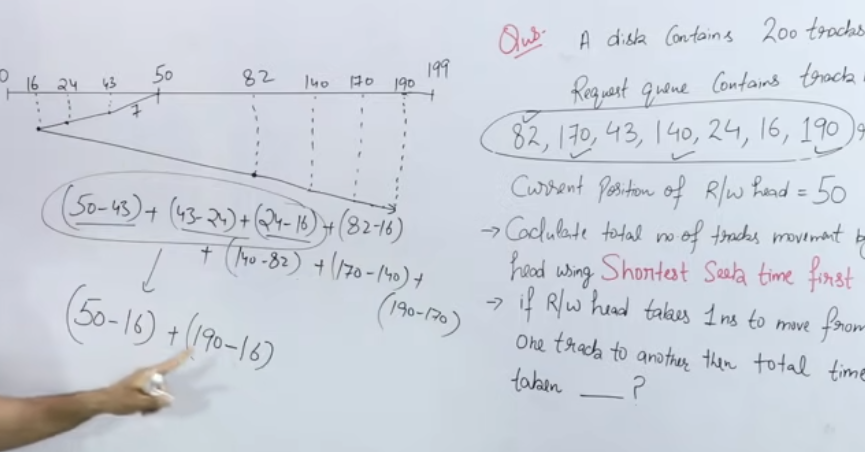 0 16 24 43 50 82 140 170 190 199
7
(50-43) + (43-24) + (24-16) + (82-16)
+ (140-82) + (170-140) +
(190-170)
(50-16) + (190-16)
Qus. A disk Contains 200 tracks
Request queue Contains track
82, 170, 43, 140, 24, 16, 190
Current Position of R/W head = 50
→ Caclulate total no of tracks movement by
head using Shortest Seek time first
→ if R/W head takes 1ns to move from
one track to another then total time
taken ___ ?